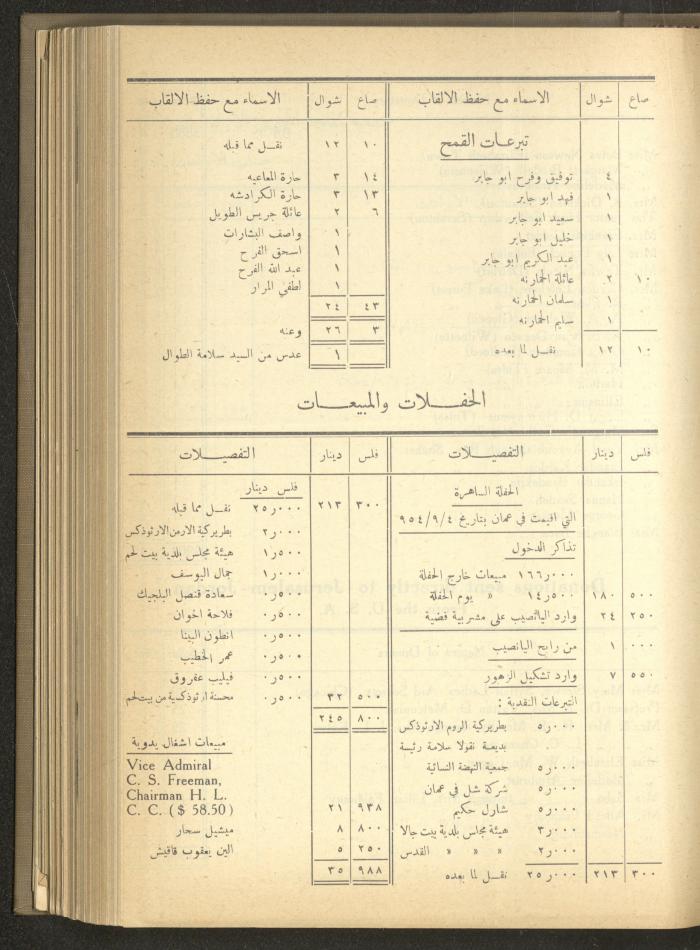 صاع شوال الاسماء مع حفظ الالقاب
تبرعات القمح
٤ توفيق وفرح ابو جابر
١ فهد ابو جابر
١ سعيد ابو جابر
١ خليل ابو جابر
١ عبد الكريم ابو جابر
١٠ ٢ عائلة الحمارنه
١ سلمان الحمارنه
١ سليم الحمارنه
١٠ ١٢ نقل لما بعده
صاع شوال الاسماء مع حفظ الالقاب
١٠ ١٢ نقل مما قبله
١٤ ٣ حارة المعاعيه
١٣ ٣ حارة الكرادشه
٦ ٢ عائلة جريس الطويل
١ واصف البشارات
١ اسحق الفرح
١ عبد الله الفرح
١ لطفي المرار
٤٣ ٢٤
٣ ٢٦ وعنه
١ عدس من السيد سلامة الطوال
الحفلات والمبيعات
فلس دينار التفصيلات
الحفلة الساهرة
التي اقيمت في عمان بتاريخ ٩٥٤/٩/٤
تذاكر الدخول
١٦٦ر٠٠٠ مبيعات خارج الحفلة
٥٠٠ ١٨٠ ١٤ر٥٠٠ » يوم الحفلة
٢٥٠ ٢٤ وارد اليانصيب على مشربية فضية
٠٠٠ ١ من رابح اليانصيب
٥٥٠ ٧ وارد تشكيل الزهور
التبرعات النقدية :
٥ر٠٠٠ بطريركية الروم الارثوذكس
بديعة نقولا سلامة رئيسة
٥ر٠٠٠ جمعية النهضة النسائية
٥ر٠٠٠ شركة شل في عمان
٥ر٠٠٠ شارل حكيم
٣ر٠٠٠ هيئة مجلس بلدية بيت جالا
٢ر٠٠٠ » » » القدس
٣٠٠ ٢١٣ ٢٥ر٠٠٠ نقل لما بعده
فلس دينار التفصيلات
فلس دينار
٣٠٠ ٢١٣ ٢٥ر٠٠٠ نقل مما قبله
٢ر٠٠٠ بطريركية الارمن الارثوذكس
١ر٥٠٠ هيئة مجلس بلدية بيت لحم
١ر٠٠٠ جمال اليوسف
٠ر٥٠٠ سعادة قنصل البلجيك
١ر٠٠٠ فلاحة اخوان
٠ر٥٠٠ انطون البينا
٠ر٥٠٠ عمر الخطيب
٠ر٥٠٠ فيليب عفروق
٥٠٠ ٣٢ ٠ر٥٠٠ محسنة ارثوذكسية من بيت لحم
٨٠٠ ٢٤٥
مبيعات اشغال يدوية
Vice Admiral
C. S. Freeman,
Chairman H. L.
C. C. ($ 58.50) ٩٣٨ ٢١
٨٠٠ ٨ ميشيل سحار
٢٥٠ ٥ الين يعقوب قاقيش
٩٨٨ ٣٥